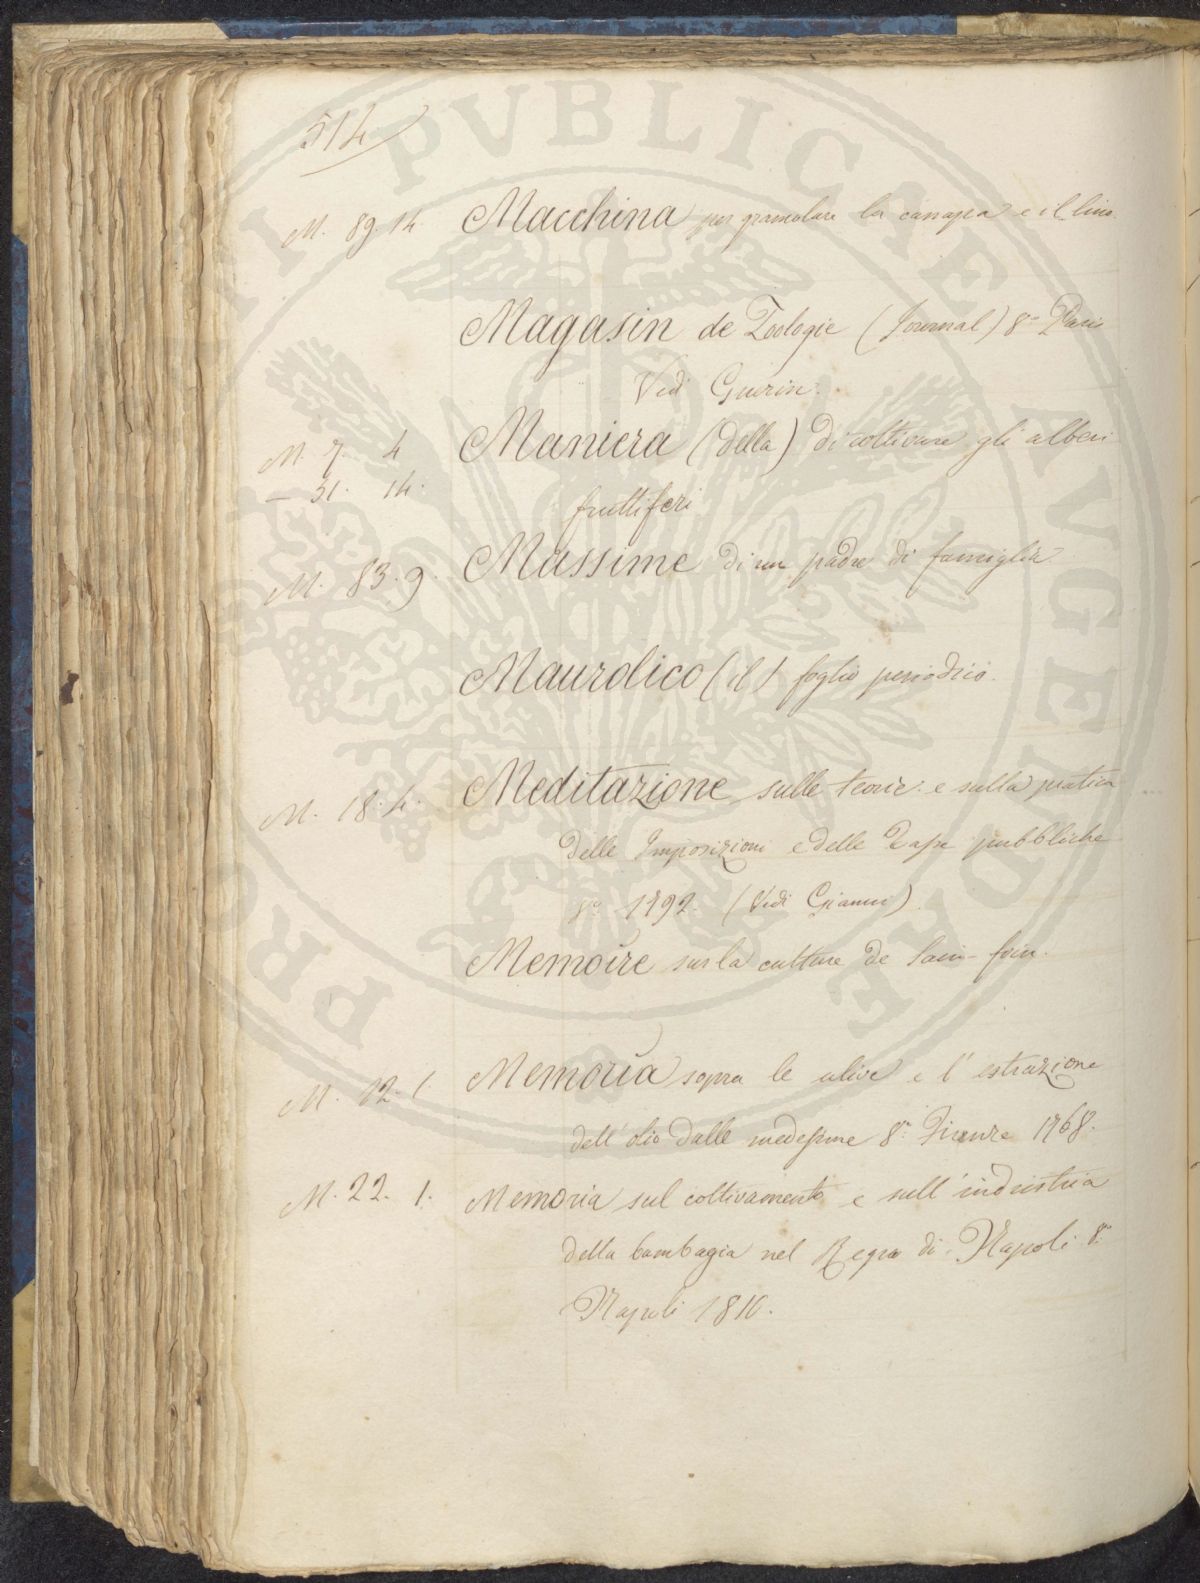 514
M. 89. 14. Macchina per gramolare la canapa e il lino.
Magasin de Zoologie (Journal) 8º Paris
Vedi Guerin.
M. 7. 4 Maniera (della) di coltivare gli alberi
— 31. 14. fruttiferi
M. 83. 9. Massime di un padre di famiglia
Maurolico (il) foglio periodico.
M. 18. 4. Meditazione sulle teorie e sulla pratica
delle Imposizioni e delle Tasse pubbliche
8º 1792. (Vedi Gianni)
Memoire sur la culture de Sain-foin.
M. 12. 1 Memoria sopra le ulive e l'estrazione
dell'olio dalle medesime 8º Firenze 1768.
M. 22. 1. Memoria sul coltivamento e sull'industria
della bambagia nel Regno di Napoli 8º
Napoli 1810.
PVBLICAE AVGENDAE